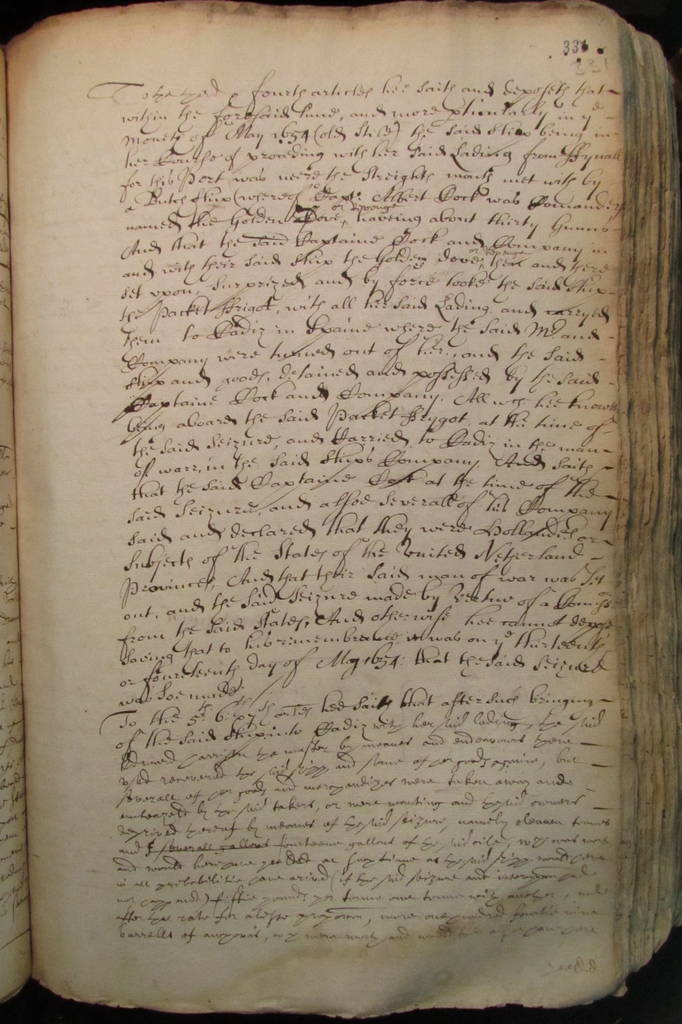 331
331
To the third & fourth articles hee saith and deposeth that
within the foresaid time, and more pticularly in ye
moneth of May 1654 (old stile) the said ship being in
her Course of proceeding with her said Lading from
for this Port was neere the Streights mouth met with by
a Dutch ship (whereof Capt: Albert Cock was Comander)
named the Golden Dove, haveing about thirty Gunns
And that the said Captaine Cock and Company in
and with their said ship the Golden dove, then and there
set upon, surprized and by force tooke the said ship
the Packet ffrigot, with all her said Lading and carryed
them to Cadiz in Spaine where the said Mr and
Company were turned out of her, and the said
ship and goods, detained and possessed by the said
Captaine Cock and Company. All wch hee knoweth
being aboard the said Packet ffrygot, at the time of
the said Seizure, and Carried to Cadiz in the man
of warr, in the said ships Company. And saith
that the said Captaine Cock at the time of the
said Seizure, and alsoe severall of his Company
said and declared that they were Hollanders or
Subjects of the States of the United Netherland
Provinces, And that their said man of war was set
out, and the said Seizure made by Vertue of a
from the said States; And otherwise hee cannot depose
saving that to his rememberance it was on ye thirteenth
or fourteenth day of May 1654: that the said Seizure
was soe made.
To the 5th 6th 7th hee saith that after such bringing
of the said ship into Cadiz with her said lading, the said
the master by meanes and endeavours there
used recovered the said shipp and some of her goods againe, but
severall of her goods and merchandizes were taken away and
imbeazeled by the said takers, or were wanting and the said owners
deprived thereof by meanes of the said seizure, namely eleaven tonnes
and severall gallons fourteene gallons of the said oile, wch was worth
and would have yeelded at such time as the said shipp would have
in all probabilitie have arived (if the said seizure and
not happned) fiftie pounds per tonne one tonne with another, and
after the rate for a lesse proportion, more one hundred fourtie nine
barrells of anchovies, wch were worth and would